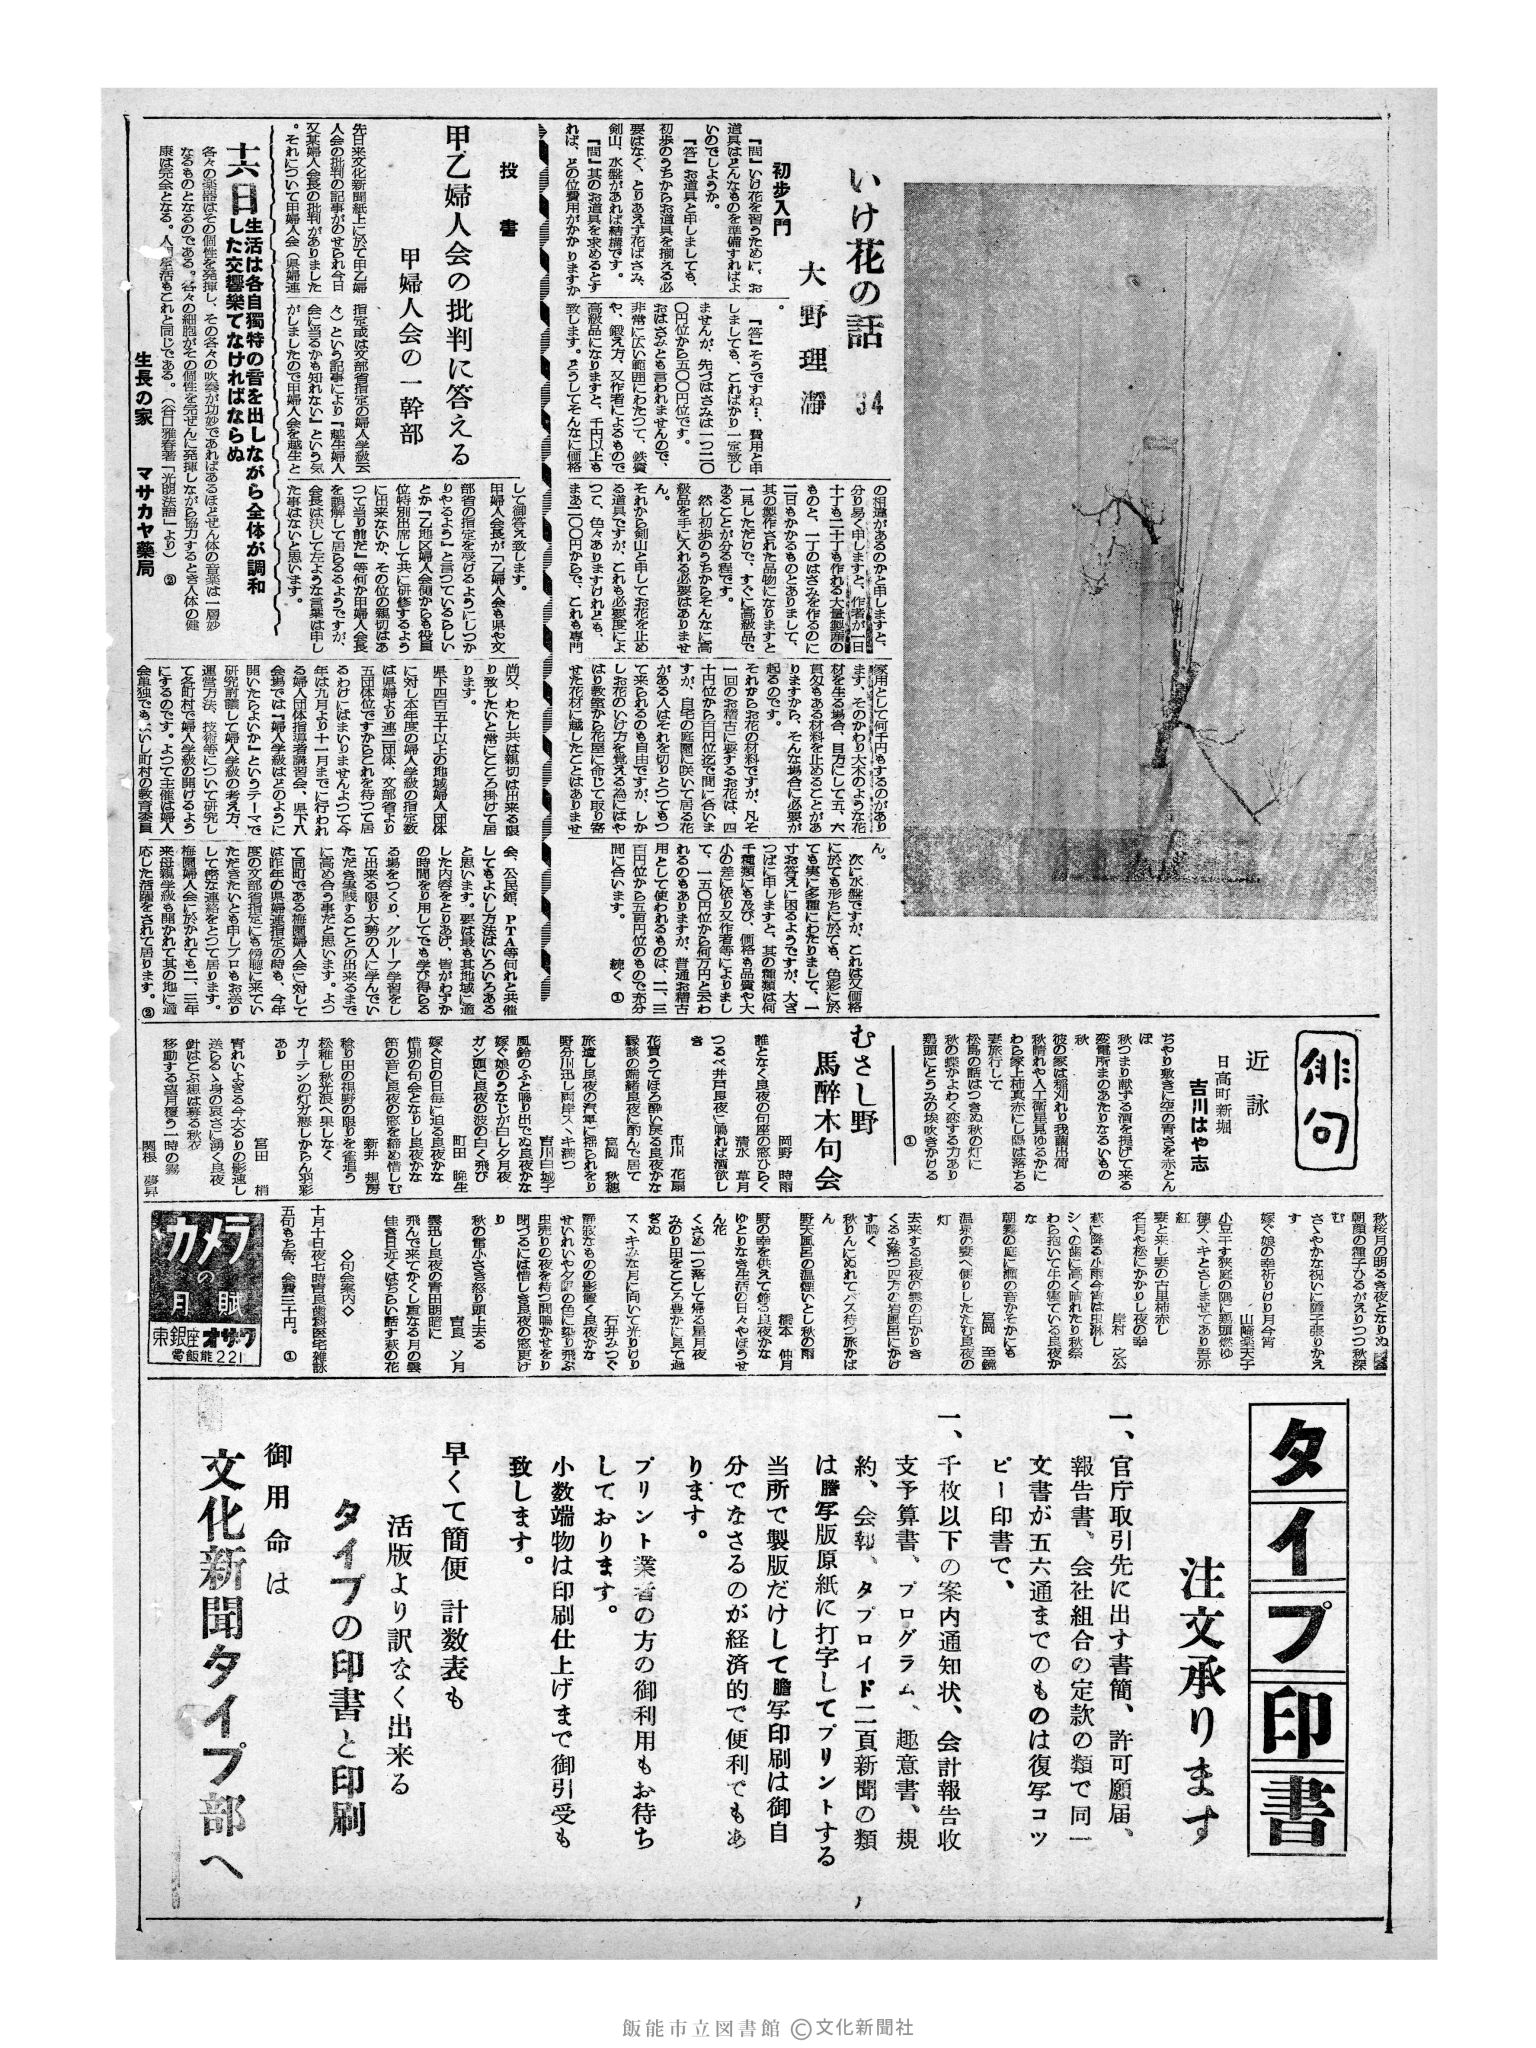 いけ花の話 34
大野理瀞
初歩入門
『問』いけ花を習うために、お
道具はどんなものを準備すればよ
いのでしようか。
『答』お道具と申しましても、
初歩のうちからお道具を揃える必
要はなく、とりあえず花ばさみ、
剣山、水盤があれば結構です。
『問』其のお道具を求めるとす
れば、どの位費用がかかりますか
。
『答』そうですね…、費用と申
しましても、こればかり一定致し
ませんが、先づはさみは一つ二〇
〇円位から五〇〇円位です。
おはさみとも言われませんので、
非常に広い範囲にわたつて、鉄質
や、鍛え方、又作者によるもので
高級品になりますと、千円以上も
致します。どうしてそんなに価格
の相違があるのかと申しますと、
分り易く申しますと、作者が一日
十丁も二十丁も作れる大量製産の
ものと、一丁のはさみを作るのに
二日もかかるものとありまして、
其の製作された品物になりますと
一見しただけで、すぐに高級品で
あることが分る程です。
然し初歩のうちからそんなに高
級品を手に入れる必要はありませ
ん。
それから剣山と申してお花を止め
る道具ですが、これも必要度によ
つて、色々ありますけれども、
まあ二〇〇円からで、これも専門
家用として何千円もするのがあり
ます、そのかわり大木のような花
材を生る場合、目方にして五、六
貫匁もある材料を止めることがあ
りますから、そんな場合に必要が
起るのです。
それからお花の材料ですが、凡そ
一回のお稽古に要するお花は、四
十円位から百円位迄で間に合いま
すが、自宅の庭園に咲いて居る花
がある人はそれを切りとつてもつ
て来られるのも自由ですが、しか
しお花のいけ方を覚える為にはや
はり教室から花屋に命じて取り寄
せた花材に越したことはありませ
ん。
次に水盤ですが、これは又価格
に於ても形ちに於ても、色彩に於
ても実に多種にわたりまして、一
寸お答えに困るようですが、大ざ
つぱに申しますと、其の種類は何
千種類にも及び、価格も品質や大
小の差に依り又作者等によりまし
て、一五〇円位から何万円と云わ
れるのもありますが、普通お稽古
用として使われるものは、二、三
百円位から五百円位のもので充分
間に合います。　続く ①
投書
甲乙婦人会の批判に答える
甲婦人会の一幹部
先日来文化新聞紙上に於て甲乙婦
人会の批判の記事がのせられ今日
又某婦人会長の批判がありました
。それについて甲婦人会（県婦連
指定或は文部省指定の婦人学級云
々）という記事により『越生婦人
会に当るかも知れない』という気
がしましたので甲婦人会を越生と
して御答え致します。
甲婦人会長が「乙婦人会も県や文
部省の指定を受けるようにしつか
りやるよう」と言つているらしい
とか『乙地区婦人会側からも役員
位特別出席して共に研修するよう
に出来ないか、その位の親切はあ
つて当り前だ』等何か甲婦人会長
を誤解して居らるるようですが、
会長は決して左ような言葉は申し
た事はないと思います。
尚又、わたし共は親切は出来る限
り致したいと常にこころ掛けて居
ります。
県下四百五十以上の地域婦人団体
に対し本年度の婦人学級の指定数
は県婦より連二団体、文部省より
五団体位ですからこれを待つて居
るわけにはまいりませんよつて今
年は九月より十一月までに行われ
る婦人団体指導者講習会、県下八
会場では『婦人学級はどのように
開いたらよいか』というテーマで
研究討議して婦人学級の考え方、
運営方法、技術等について研究し
て各町村で婦人学級の開けるよう
にするのです。よつて主催は婦人
会単独でもよいし町村の教育委員
会、公民館、PTA等何れと共催
してもよいし方法はいろいろある
と思います。要は最も其地域に適
した内容をとりあげ、皆がわずか
の時間をり用してでも学び得らる
る場をつくり、グループ学習をし
て出来る限り大勢の人に学んでい
ただき実践することの出来るまで
に高め合う事だと思います。よつ
て同町である梅園婦人会に対して
は昨年の県婦連指定の時も、今年
度の文部省指定にも傍聴に来てい
ただきたいとも申しプロもお送り
して密な連絡をとつて居ります。
梅園婦人会に於かれても二、三年
来母親学級も開かれて其の地に適
応した活躍をされて居ります。②
十六日
生活は各自獨特の音を出しながら全体が調和
した交響樂てなければならぬ
各々の楽器はその個性を発揮し、その各々の吹奏が功妙であればあるほどぜん体の音楽は一層妙
なるものとなるのである。各々の細胞がその個性を完ぜんに発揮しながら協力するとき人体の健
康は完全となる。人間生活もこれと同じである。（谷口雅春著「光明法語」より）②
生長の家　マサカヤ藥局
俳句
近詠
日高町新堀
吉川はや志
ぢやり敷きに空の青さを赤とん
ぼ
秋つまり献ずる酒を提げて来る
変電所まのあたりなるいもの
秋
彼の家は稲刈れり我繭出荷
秋晴れや人工衛星見ゆるかに
わら家上柿真赤にし陽は落ちる
妻旅行して
松島の話はつきぬ秋の灯に
秋の蝶かよわく恋する力あり
鶏頭にとうみの埃吹きかける
①
むさし野
馬醉木句会
誰となく良夜の句座の窓ひらく
岡野 時雨
つるべ井戸良夜に鳴れば酒欲し
清水 草月
き
花買うてほろ酔い戻る良夜かな
市川 花扇
縁談の端緒良夜に酌んで居て
宮岡 秋穂
旅遠し良夜の汽車に揺られをり
野分川迅し両岸スヽキ積つ
吉川白城子
風鈴のふと鳴り出でぬ良夜かな
嫁ぐ娘のうなじが白し夕月夜
ガン頭に良夜の波の白く飛び
町田 晩生
嫁ぐ日の日毎に迫る良夜かな
惜別の句会となりし良夜かな
笛の音に良夜の窓を締め惜しむ
新井 規房
稔り田の視野の限りを雀追う
松稚し秋光浪へ果しなく
カーテンの灯カ悪しからん羽彩
あり
宮田 梢
青れいよぎる今大るりの影速し
送らるゝ身の哀さに湧く良夜
針はこぶ想は募る秋衣
移動する望月覆う一時の霧
関根 夢昇
秋桜月の明るき夜となりぬ
朝顔の種子ひるがえりつつ秋深
む
さゝやかな祝いに障子張りかえ
す
嫁ぐ娘の幸祈りけり月今宵
山崎楽天子
小豆干す狭庭の隅に鶏頭燃ゆ
穂スヽキとさしませてあり吾亦
紅
妻と来し妻の古里柿赤し
名月や松にかかりし夜の幸
岸村 之公
萩に降る小雨今宵は虫淋し
シヽの歯に高く晴れたり秋祭
わら抱いて牛の寝ている良夜か
な
朝霧の庭に瀬の音かそかにも
宮岡 至鏡
温泉の妻へ便りしたたむ良夜の
灯
去来する良夜の雲の白かりき
くるみ落つ四方の岩風呂にかけ
す鳴く
秋りんにぬれてバス待つ旅かば
ん
野天風呂の温煙いとし秋の雨
橋本 仲月
野の幸を供えて飾る良夜かな
ゆとりなき生活の日々やほうせ
ん花
くさめ一つ落して帰る星月夜
みのり田をこころ豊かに見て過
ぎぬ
スヽキみな月に向いて光りけり
石井みつぐ
静寂なものの影置く良夜かな
せいれいや夕陽の色に染り飛ぶ
虫売りの夜を待つ間鳴かせをり
閉づるには惜しき良夜の窓更け
り
秋の雷小さき怒り頭上去る
吉良 ソ月
雲迅し良夜の青田明暗に
飛んで来てかくし重なる月の雲
佳き日近くはぢらい話す萩の花
◇句会案内◇
十月十日夜七時吉良歯科医宅雑詠
五句もち寄、会費三十円。 ①
カメラの月賦
東銀座 オザワ
電飯能221
タイプ印書
注文承ります
一、官庁取引先に出す書簡、許可願届、
報告書、会社組合の定款の類で同一
文書が五六通までのものは復写コッ
ピー印書で、
一、千枚以下の案内通知状、会計報告収
支予算書、プログラム、趣意書、規
約、会報、タブロイド二頁新聞の類
は謄写版原紙に打字してプリントする
当所で製版だけして謄写印刷は御自
分でなさるのが経済的で便利でもあ
ります。
プリント業者の方の御利用もお待ち
しております。
小数端物は印刷仕上げまで御引受も
致します。
早くて簡便 計数表も
活版より訳なく出来る
タイプの印書と印刷
御用命は
文化新聞タイプ部へ
飯能市立図書館 ©文化新聞社